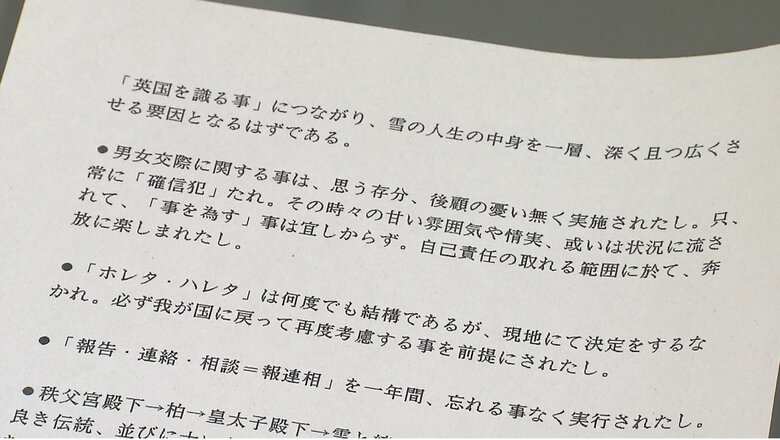 「英国を識る事」につながり、雪の人生の中身を一層、深く且つ広くさ
せる要因となるはずである。
●男女交際に関する事は、思う存分、後顧の憂い無く実施されたし。只、
常に「確信犯」たれ。その時々の甘い雰囲気や情実、或いは状況に流さ
れて、「事を為す」事は宜しからず。自己責任の取れる範囲に於て、奔
放に楽しまれたし。
●「ホレタ・ハレタ」は何度でも結構であるが、現地にて決定をするな
かれ。必ず我が国に戻って再度考慮する事を前提にされたし。
●「報告・連絡・相談＝報連相」を一年間、忘れる事なく実行されたし。
●秩父宮殿下→柏→皇太子殿下→雪と
良き伝統、並びに